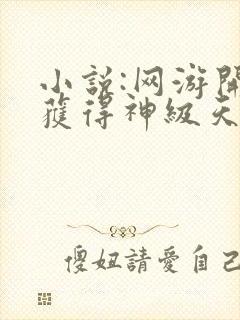 小説:网游開
獲得神級天
傻妞請愛自己